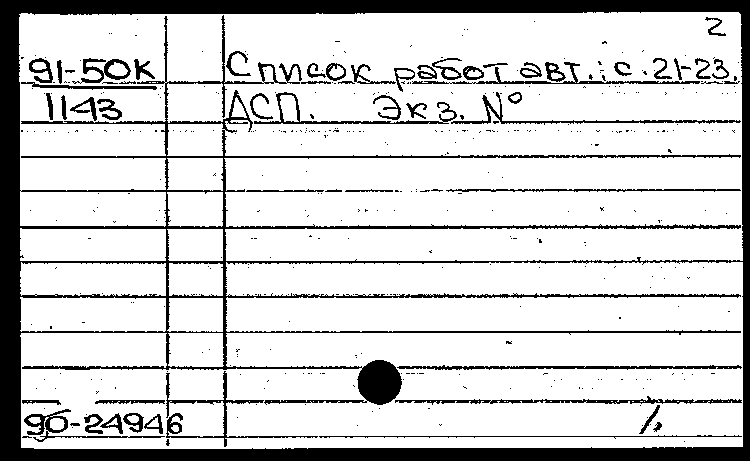 2
91-50К Список работ авт.: с. 21-23.
1143 ДСП. Экз. №
90-24946